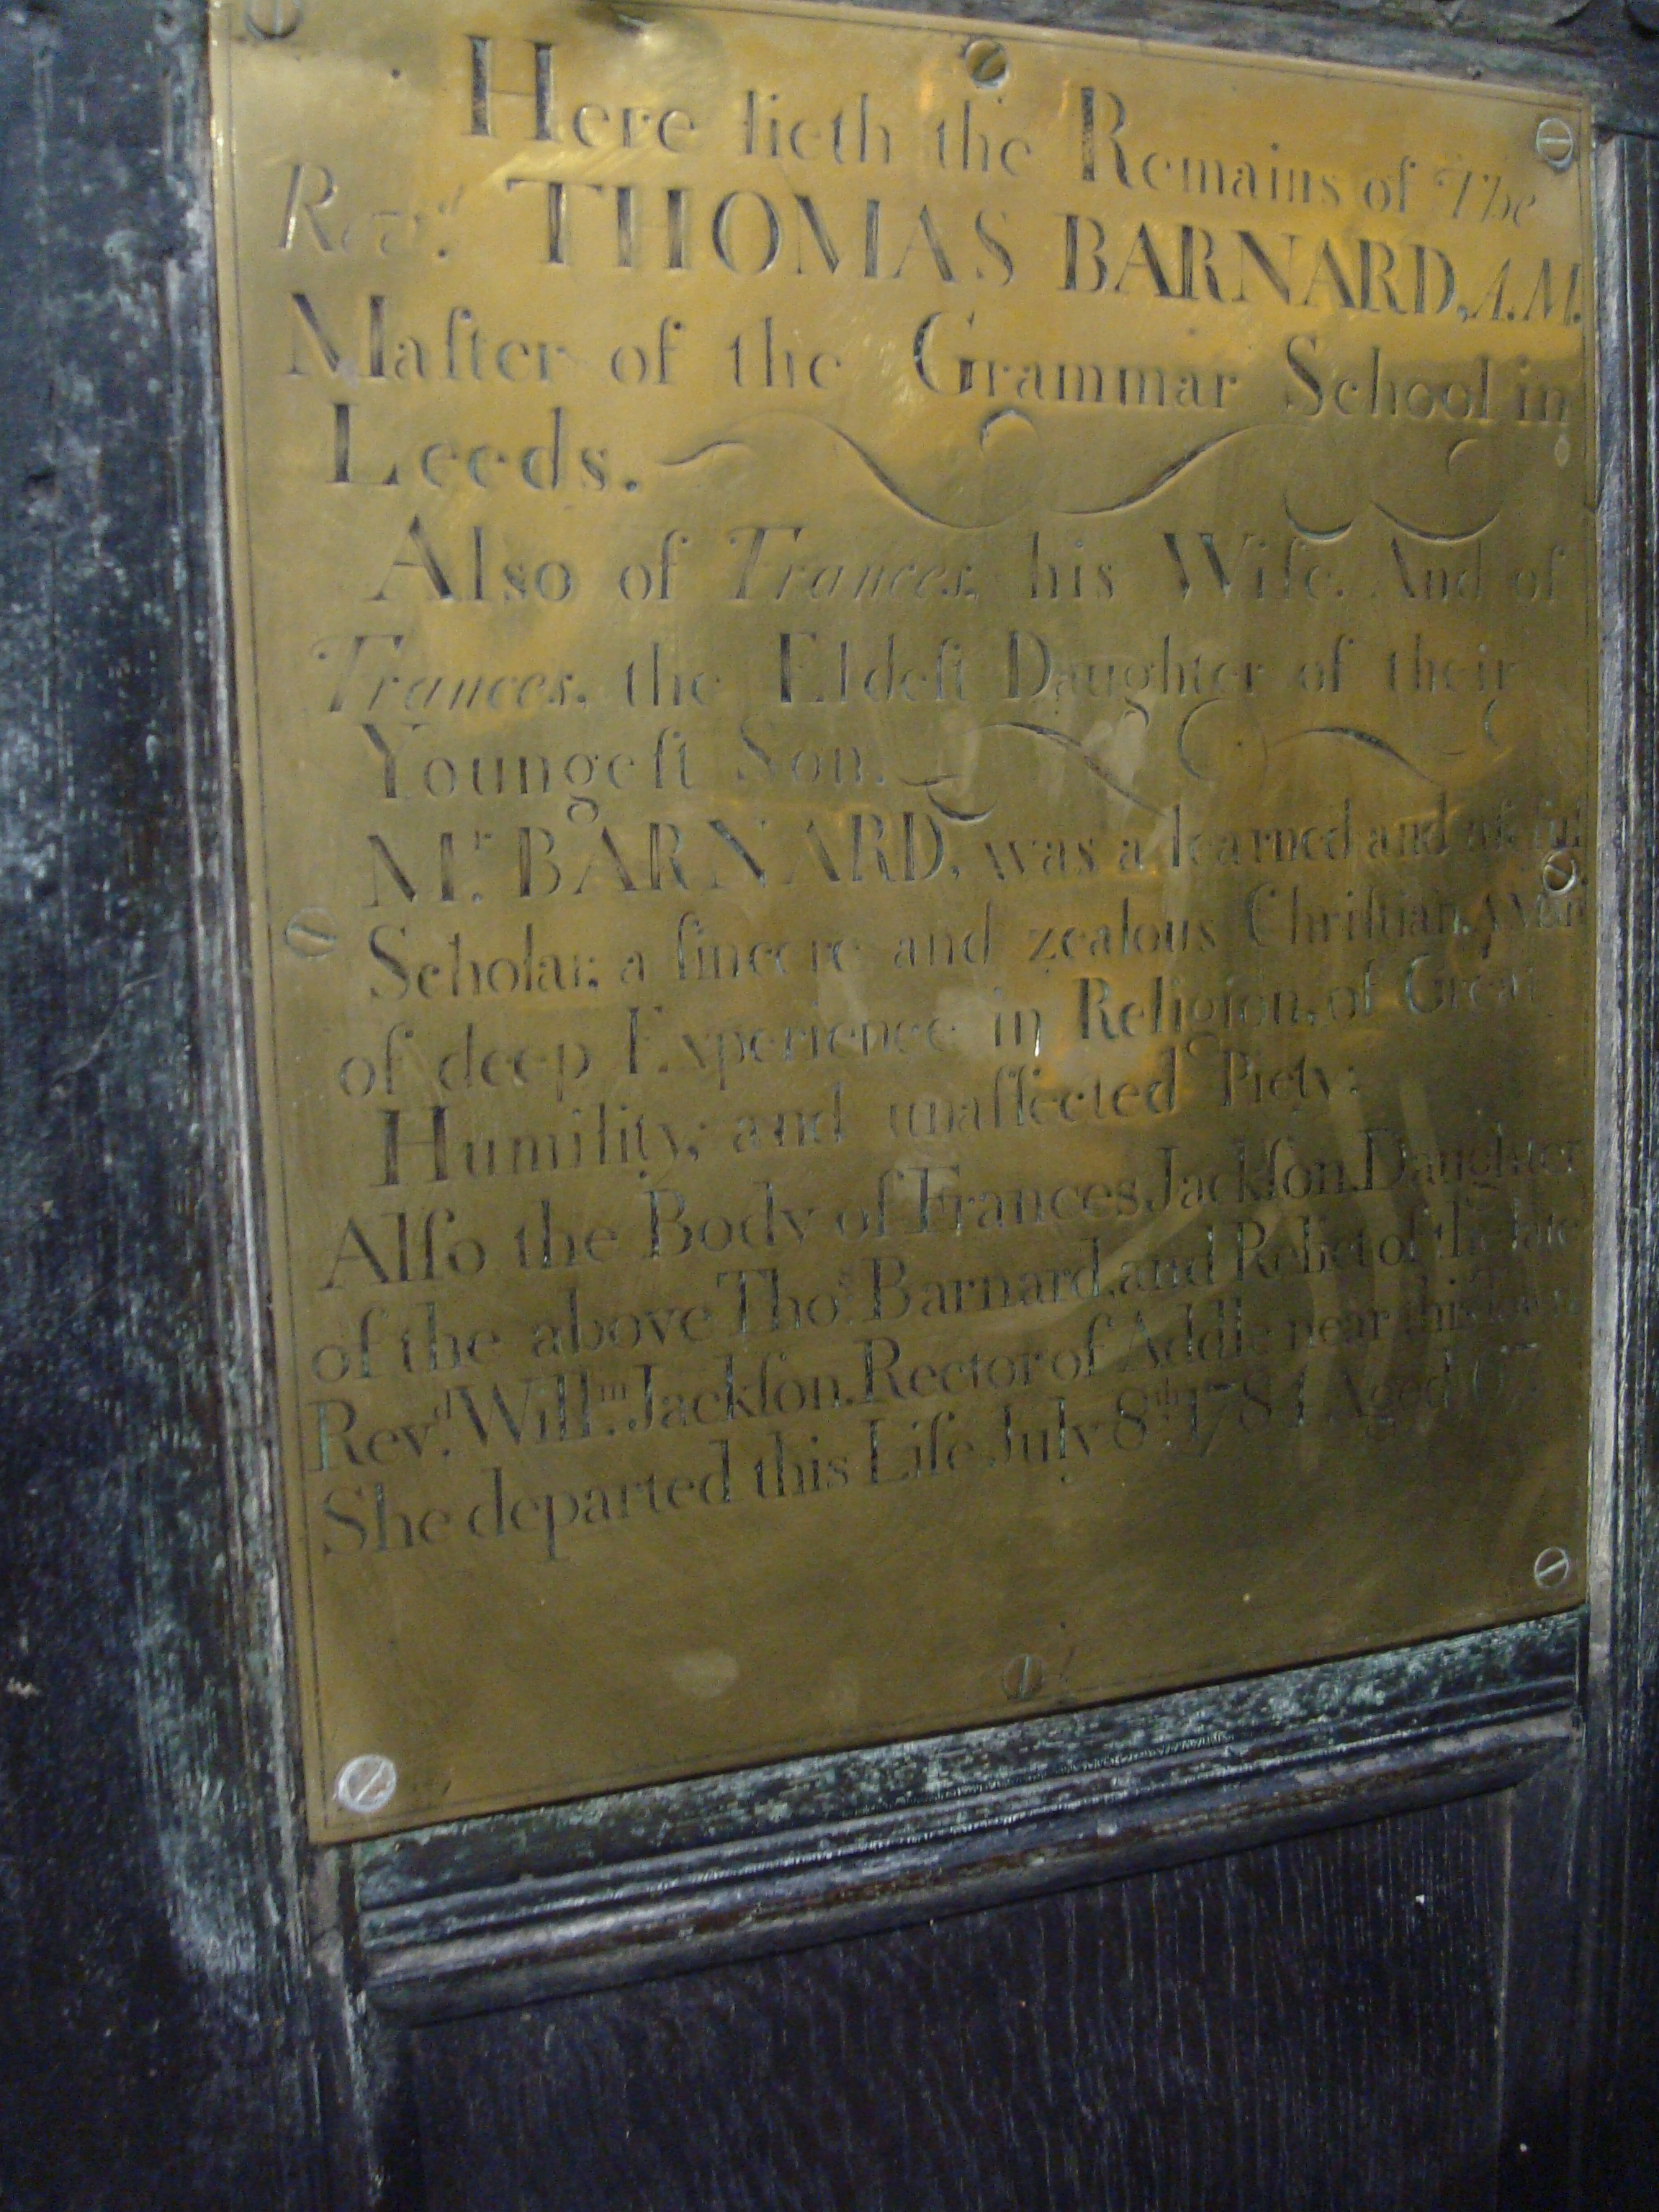 Here lieth the Remains of The
Revd. THOMAS BARNARD, A.M.
Maſter of the Grammar School in
Leeds.
Also of Frances, his Wife. And of
Frances, the Eldeſt Daughter of their
Youngeſt Son.
Mr. BARNARD, was a learned and uſefull
Scholar, a ſincere and zealous Chriſtian, A Man
of deep Experience in Religion, of Great
Humility, and unaffected Piety:
Alſo the Body of Frances Jackſon Daughter
of the above Thos. Barnard, and Relict of the late
Revd. Willm. Jackſon, Rector of Addle near this Town.
She departed this Life July 8th. 1784 Aged